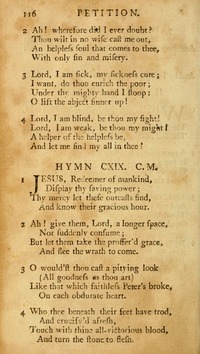 116 PETITION.
2 Ah! wherefore did I ever doubt?
Thou wilt in no wiſe caſt me out,
An helpleſs ſoul that comes to thee,
With only ſin and miſery.
3 Lord, I am ſick, my ſickneſs cure;
I want, do thou enrich the poor;
Under thy mighty hand I ſtoop:
O lift the abject ſinner up!
4 Lord, I am blind, be thou my ſight!
Lord, I am weak, be thou my might!
A helper of the helpleſs be,
And let me find my all in thee!
HYMN CXIX. C. M.
1 JESUS, Redeemer of mankind,
Diſplay thy ſaving power;
Thy mercy let theſe outcaſts find,
And know their gracious hour.
2 Ah! give them, Lord, a longer ſpace,
Nor ſuddenly conſume;
But let them take the proffer'd grace,
And flee the wrath to come.
3 O would'ſt thou caſt a pitying look
(All goodneſs as thou art)
Like that which faithleſs Peter's broke,
On each obdurate heart.
4 Who thee beneath their feet have trod,
And crucify'd afreſh,
Touch with thine all-victorious blood,
And turn the ſtone to fleſh.